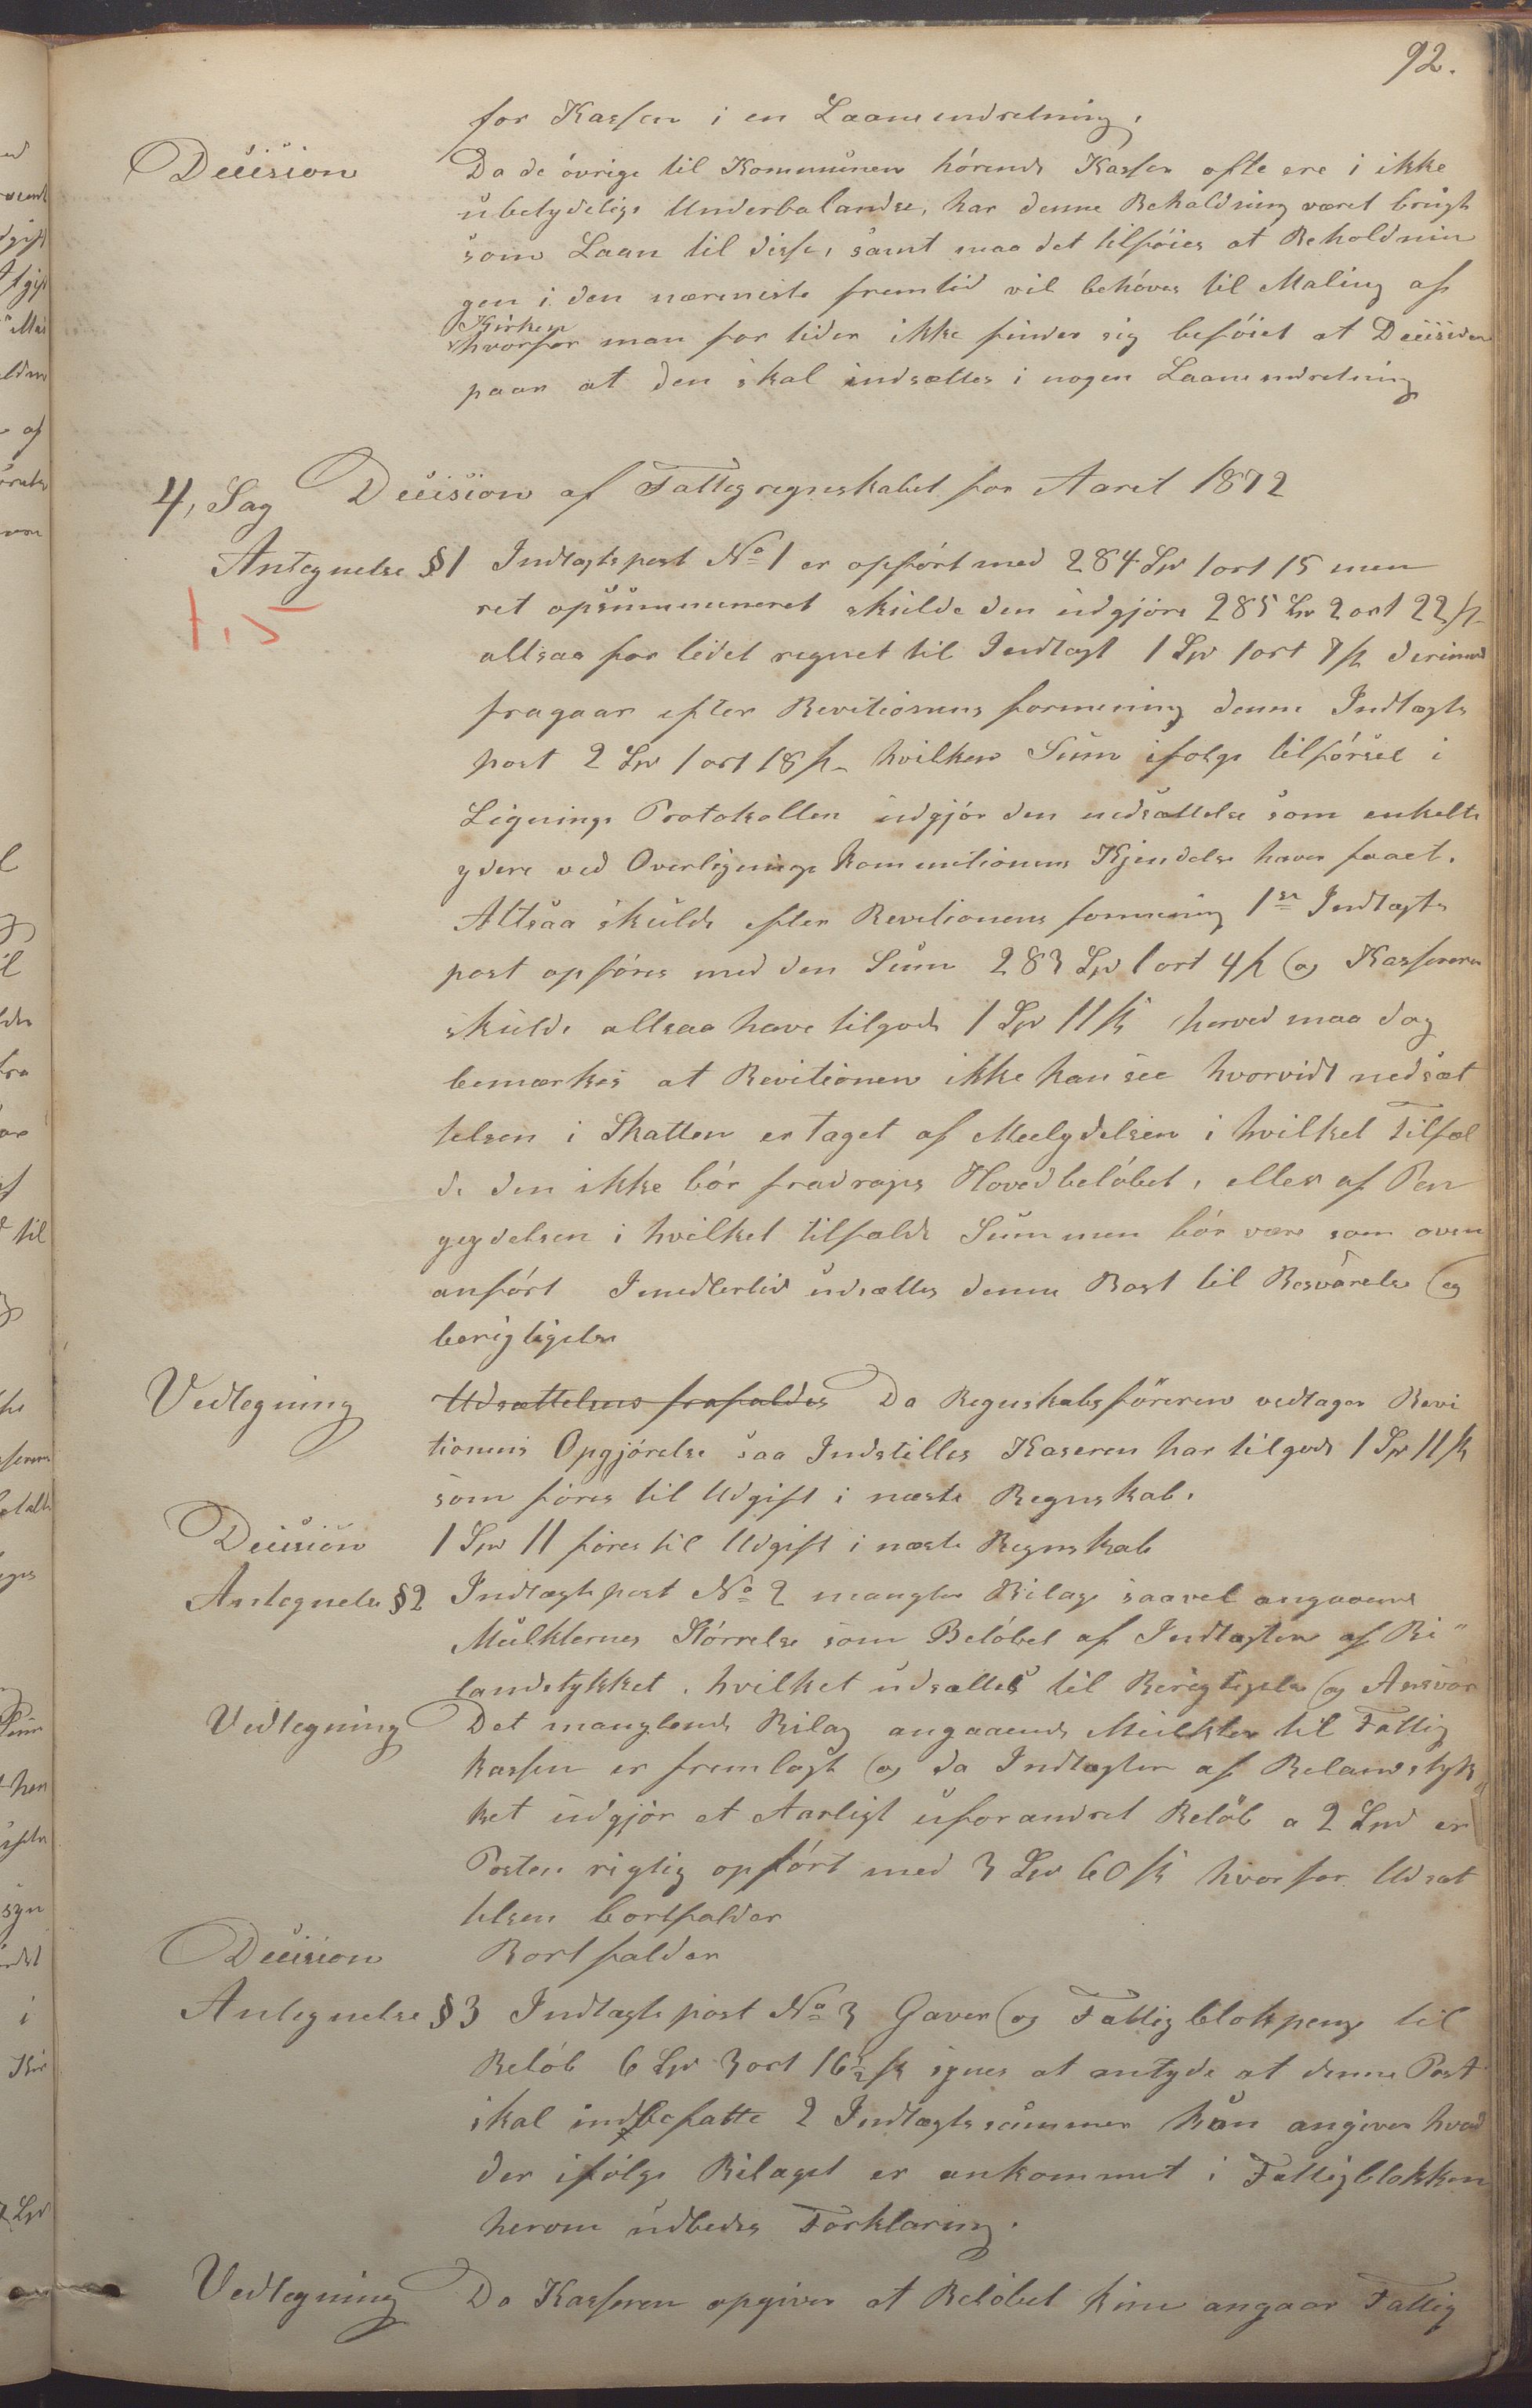 92.
for Kassen i en Laaneindretning,
Decision Da de óvrige til Kommunen hórende Kasser ofte ere i ikke
ubetydelige Underbalandse, har denne Beholdning været brugt
som Laan til disse, samt maa det tilfóies at Beholdnin
gen i den nærmeste fremtid vil behóves til Maling af
Kirken
hvorfor man for tiden ikke finder sig befóiet at Decisidere
paa at den skal indsættes i nogen Laaneindretning
4, Sag Decision af Fattigregnskabet for Aaret 1872
Antegnelse §1 Indtægtspost No 1 er opfórt med 284 Spd 1 ort 15 men
ret opsummeneret skulde den udgjóre 285 Spd 2 ort 22 ß
altsaa for lidet regnet til Indtægt 1 Spd 1 ort 7 ß derimod
1,5
fragaar efter Revitionens formening denne Indtægts
post 2 Spd 1 ort 18 ß hvilken Sum ifølge tilfórsel i
Lignings Protokollen udgjór den nedsættelse som enkelte
ydere ved Overlignings kommitionens Kjendelse haver faaet.
Altsaa skulde efter Revitionens formening 1ste Indtægts
post opfóres med den Sum 283 Spd 1 ort 4 ß og Kassereren
skulde altsaa have tilgode 1 Spd 11 ß herved maa dog
bemærkes at Revitionen ikke kan see hvorvidt nedsæt
telsen i Skatten er taget af Meelydelsen i hvilket Tilfæl
de den ikke bór fradrages Hovedbelóbet, eller af Pen
geydelsen i hvilket tilfælde Summen bór være som oven
anfórt Imidlertid udsættes denne Post til Besvarelse og
berigtigelse
Vedtegning Udsættelsens frafaldes Da Regnskabsfóreren vedtager Revi
tionens Opgjórelse saa Indstilles Kaseren har tilgode 1 Spd 11 ß
som fóres til Udgift i næste Regnskab.
Decision 1 Spd 11 fóres til Udgift i næste Regnskab
Antegnelse §2 Indtægtspost No 2 mangler Bilage saavel angaaende
Mulkternes Stórrelse som Belóbet af Indtægten af Be"
landstykket, hvilket udsættes til Berigtigelse og Ansvar
Vedtegning Det manglende Bilag angaaende Mulkter til Fattig
kassen er fremlagt og da Indtægten af Belandstyk"
ket udgjór et Aarligt uforandret Belób a 2 Spd er
Posten rigtig opfórt med 3 Spd 60 ß hvorfor Udsæt
telsen bortfalder
Decision Bortfalder
Antegnelse §3 Indtægts post No 3 Gaver og Fattigblokpenge til
Belób 6 Spd 3 ort 16½ ß synes at antyde at denne Post
skal indbefatte 2 Indtægtssummer kun angives hvad
der ifólge Bilaget er ankommet i Fattigblokken
herom udbedes Forklaring.
Vedtegning Da Kasseren opgiver at Belóbet kun angaar Fattig